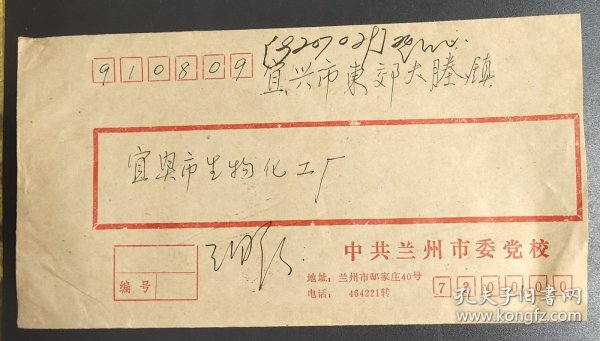 910809
宜兴市東郊大塍镇
宜興市生物化工厂
中共兰州市委党校
地址：兰州市邸家庄40号
电话： 464221转
730000
编号
孔夫子旧书网
www.kongfz.com